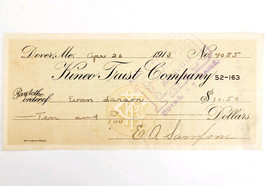 Dover, Me. Apr 26 1913 No. 4085
Kineo Trust Company 52-163
Pay to the order of Evan Larson $10.50
Ten and 50/100 Dollars
E A Sanford